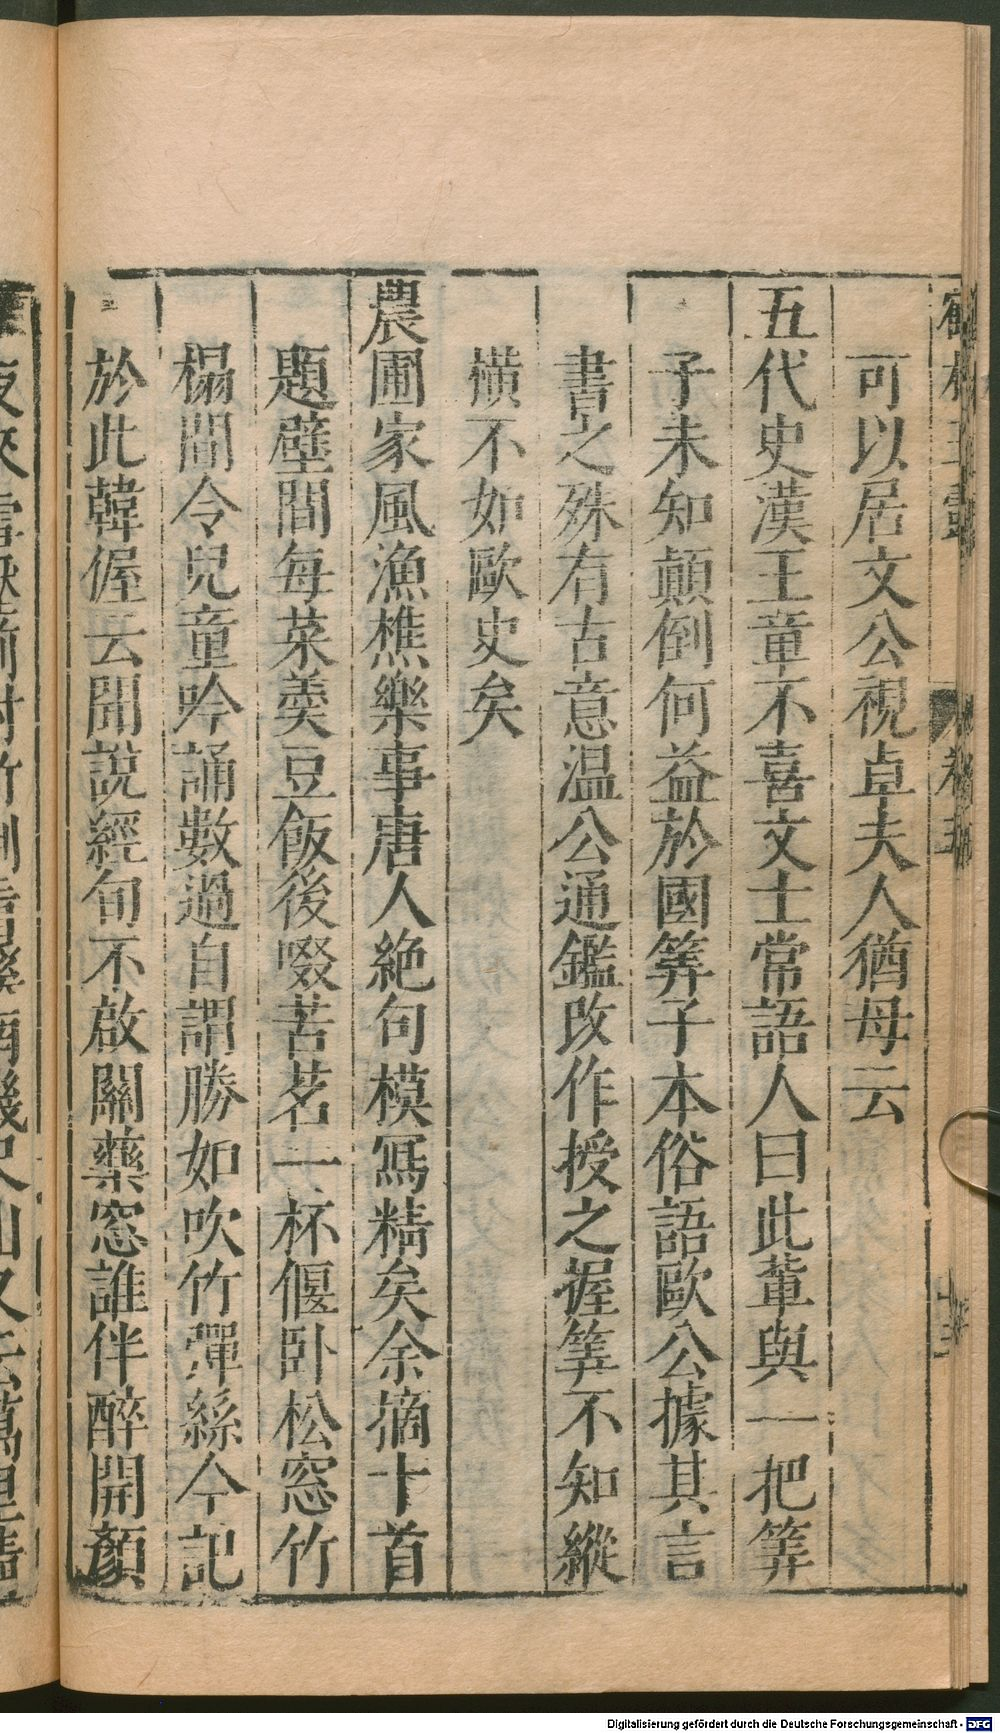 可以居文公視卓夫人猶母云
五代史漢王章不喜文士常語人曰此輩與一把筭
子未知顛倒何益於國筭子本俗語歐公據其言
書之殊有古意温公通鑑改作授之握筭不知縱
橫不如歐史矣
農圃家風漁樵樂事唐人絶句模寫精矣余摘十首
題壁間每菜羮豆飯後啜苦茗一杯偃卧松窓竹
榻間令兒童吟誦數過自謂勝如吹竹彈絲今記
於此韓偓云聞說經旬不啟關藥窓誰伴醉開顏
Digitalisierung gefördert durch die Deutsche Forschungsgemeinschaft - DFG